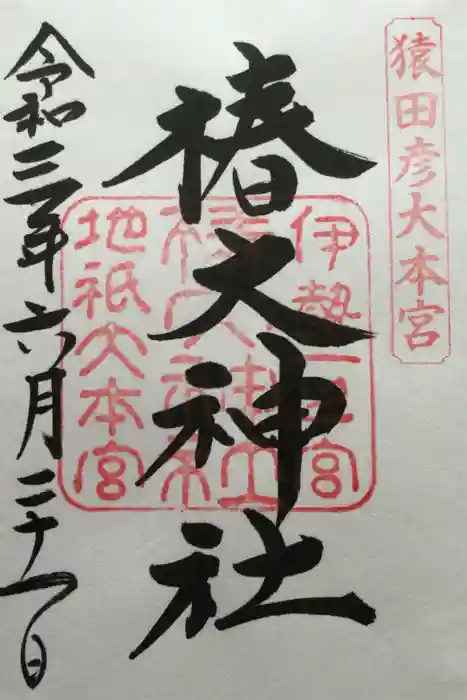 猿田彦大本宮
椿大神社
伊勢一之宮
地祇大本宮
令和三年六月二十一日